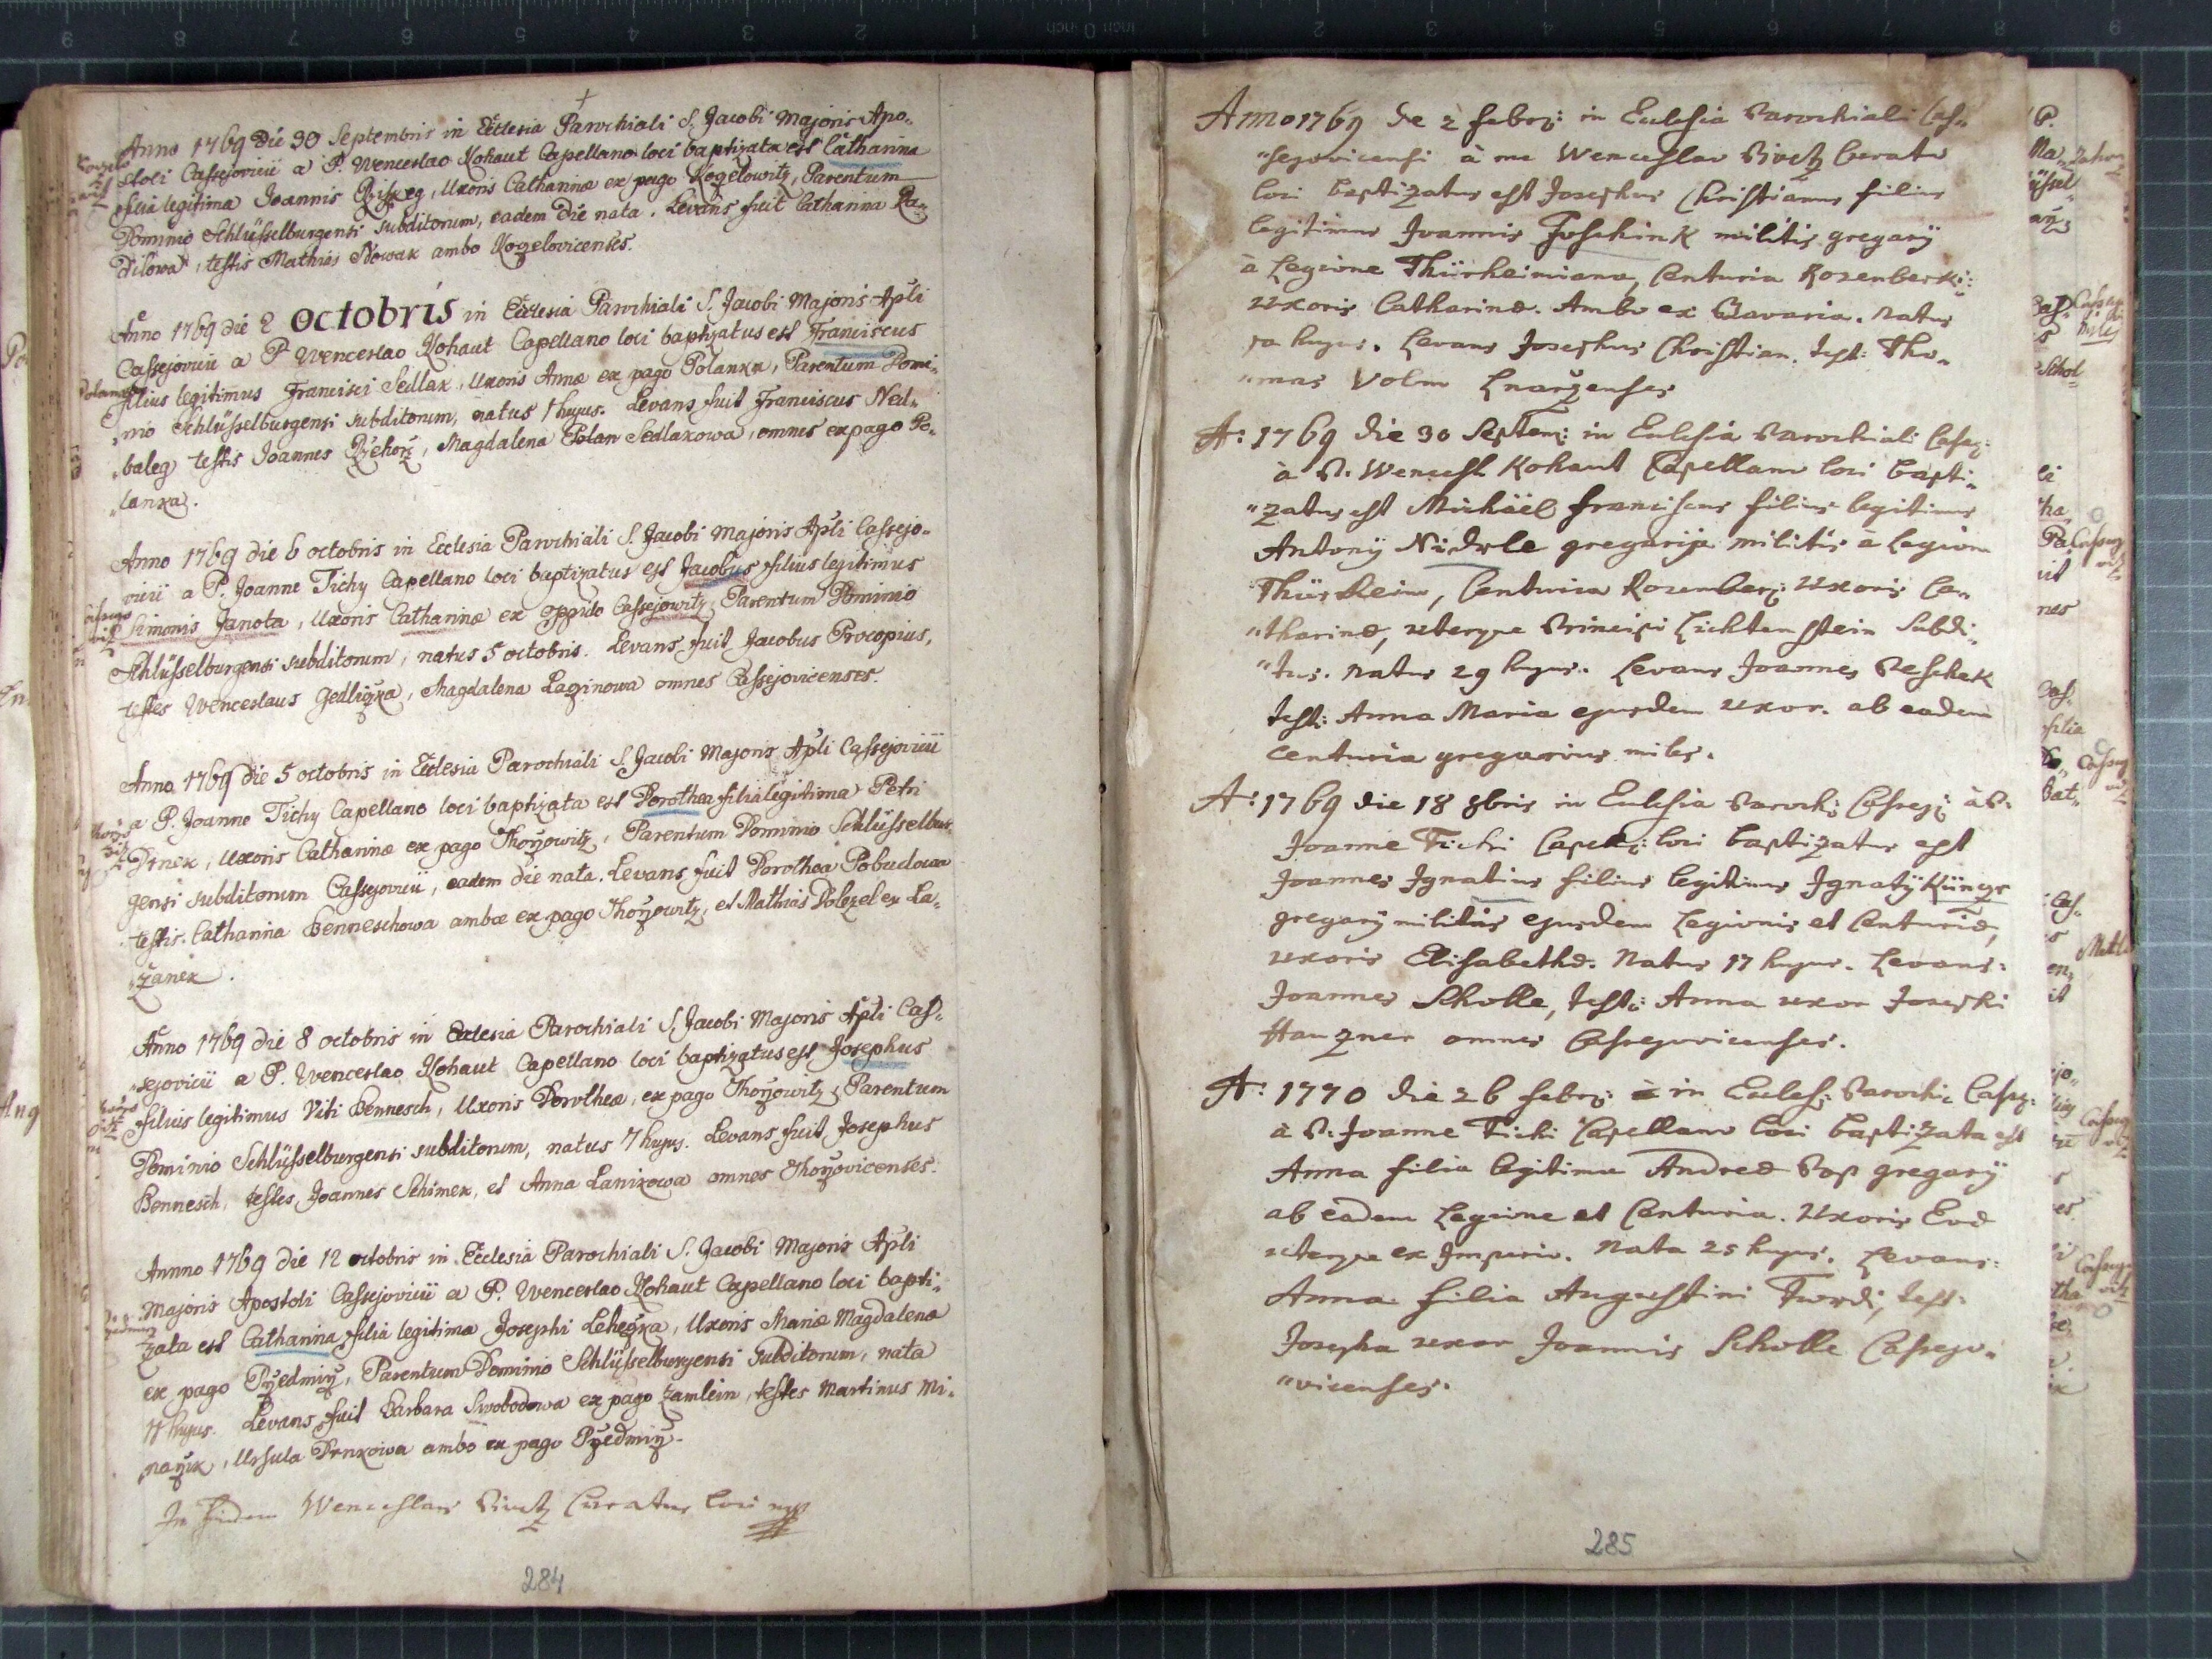 Anno 1769 Die 30 Septembris in Ecclesia Parochiali S. Jacobi Majoris Apo„
stoli Cassejovicii a P. Wenceslao Kohaut Capellano loci baptizata est Catharina
filia legitima Joannis Uxoris Catharinæ ex pago Kozelowitz, Parentum
Dominio Schlüsselburgensi subditorum, eadem die nata. Levans fuit Catharina
testis Mathias Nowak ambo Kozelovicenses.
Anno 1769 die 2 octobris in Ecclesia Parochiali S. Jacobi Majoris Apli
Cassejovicii a P. Wenceslao Kohaut Capellano loci baptizatus est Franciscus
filius legitimus Francisci Sedlak, Uxoris Annæ ex pago Polanka, Parentum Domi„
„nio Schlüsselburgensi subditorum, natus 1 hujus. Levans fuit Franciscus Ned„
„baleg testis Joannes Magdalena Sedlakowa, omnes ex pago Po„
„lanka.
Anno 1769 die 6 octobris in Ecclesia Parochiali S. Jacobi Majoris Apli Cassejo„
vicii a P. Joanne Tichy Capellano loci baptizatus est Jacobus filius legitimus
Simonis Janota, Uxoris Catharinæ ex oppido Cassejowitz, Parentum Dominio
Schlüsselburgensi subditorum, natus 5 octobris. Levans fuit Jacobus Procopius,
testes Wenceslaus Gedliczka, Magdalena Lazinowa omnes Cassejovicenses.
Anno 1769 die 5 octobris in Ecclesia Parochiali S. Jacobi Majoris Apli Cassejovicii
a P. Joanne Tichy Capellano loci baptizata est Dorothea filia legitima Petri
Drnek, Uxoris Catharinæ ex pago Parentum Dominio Schlüsselbur„
gensi subditorum Cassejovicii, eadem die nata. Levans fuit Dorothea Pobudowa
testis. Catharina Benneschowa ambæ ex pago et Mathias Dolezel ex La„
„zanek.
Anno 1769 die 8 octobris in Ecclesia Parochiali S. Jacobi Majoris Apli Cas„
„sejovicii a P. Wenceslao Kohaut Capellano loci baptizatus est Josephus
filius legitimus Viti Bennesch, Uxoris Dorotheæ, ex pago Parentum
Dominio Schlüsselburgensi subditorum, natus 7 hujus. Levans fuit Josephus
Bennesch, testes Joannes Schimek, et Anna omnes
Annno 1769 die 12 octobris in Ecclesia Parochiali S. Jacobi Majoris Apli
Majoris Apostoli Cassejovicii a P. Wenceslao Kohaut Capellano loci bapti„
zata est Catharina filia legitima Josephi Uxoris Mariæ Magdalenæ
ex pago Parentum Dominio Schlüsselburgensi subditorum, nata
hujus. Levans fuit Barbara Swobodowa ex pago Zamlein, testes Martinus Mi„
Ursula Drnkowa ambo ex pago
In fidem Wenceslaus Curatus loci mpp
284
Anno 1769 de 2 febrg: in Ecclesia Parochiali Cas„
„sejovicensi à me Wenceslao Curato
loci baptizatus est Josephus Christianus filius
legitimus Joannis Foschink militis gregarÿ
à Legione Thürheimiana, Centuria Rosenberki:
uxoris Catharinæ. Ambo ex Bavaria. Natus
hujus. Levans Josephus Christian. test: Tho„
„mas Volm
A: 1769 die 30 Septem: in Ecclesia Parochiali Cassej:
à P. Wencesl. Kohaut Capellano loci bapti„
„zatus est Michäel Franciscus filius legitimus
Antonÿ Nidrle gregarije militis a Legione
Thürheim, Centuria Rosenberg: uxoris Ca„
„tharinæ, uterque Principi Lichtenstein Subdi„
„tus. Natus 29 hujus. Levans Joannes Peschek
test: Anna Maria ejusdem uxor. ab eadem
centuria gregarius miles.
A: 1769 die 18 8bris in Ecclesia Paroch: Cassej: à P.
Joanne Tichi Capell: loci baptizatus est
Joannes Ignatius filius legitimus Ignatÿ
gregarÿ militis ejusdem Legionis et Centuriæ,
uxoris Elisabethæ. Natus 17 hujus. Levans:
Joannes Scholle, test: Anna uxor Josephi
Hauzner omnes Cassejovicenses.
A: 1770 die 26 febrg: in Eccles: Paroch: Cassej:
à P. Joanne Tichi Capellano loci baptizata est
Anna filia legitima Andreæ Pop gregarÿ
ab eadem Legione et Centuria. Uxoris Evæ
uterque ex Imperio. Nata 25 hujus. Levans:
Anna filia Augustini Twrdi, test:
Josepha uxor Joannis Scholle Cassejo„
„vicenses.
285